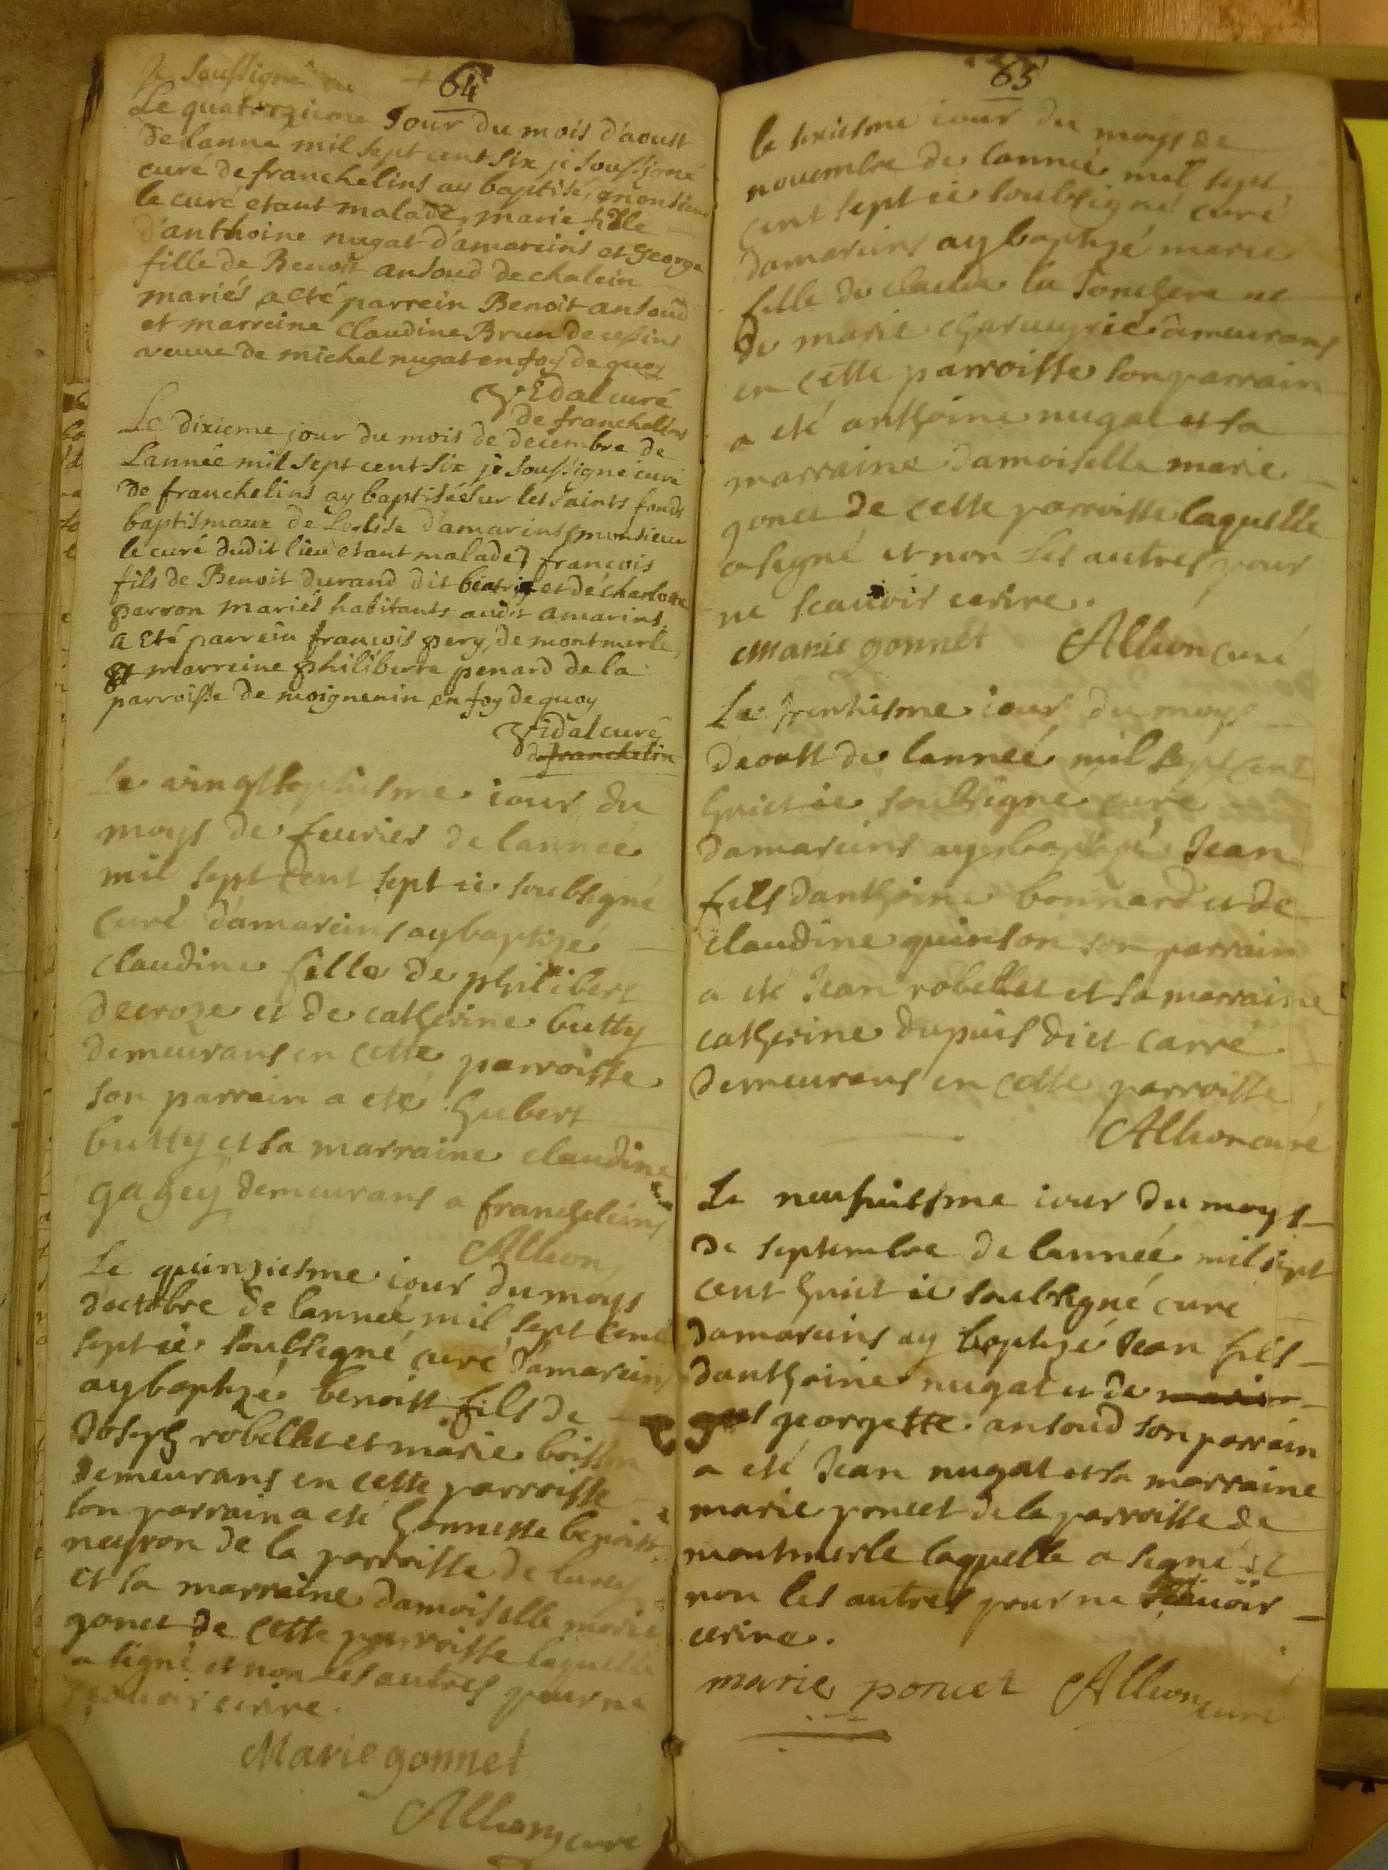 64
je soussigné
Le quatorzieme Jour du mois d'aoust
de lanné mil sept cent six je soussigné
curé de franchelins ay baptisé, monsieur
le curé etant malade, marie fille
d'anthoine nugat d'amareins et George
fille de Benoit ansoud de chalein
mariés a eté parrein Benoit ansoud
et marreine claudine Brun de cessins
veuve de michel nugat en foy de quoy
Vidal curé
de franchelins
Le dixieme jour du mois de decembre de
Lannée mil sept cent six je soussigné curé
de franchelins ay baptisé sur les saints fonds
baptismaux de Leglise d'amarins (monsieur
le curé dudit lieu etant malade) francois
fils de Benoit durand dit beatrix et de charlotte
perron mariés habitants audit amarins,
a eté parrein francois pery, de montmerle,
et marreine philiberte penard de la
parroisse de moignenin en foy de quoy
Vidal curé
de franchelin
Le vingtseptiesme iour du
moys de feurier de lannée
mil sept cent sept ie soubsigné
curé d'amareins ay baptizé
claudine fille de philibert
decroze et de catherine butty
demeurans en cette parroisse
son parrain a eté hubert
butty et sa marraine claudine
gagey demeurans a franchelins
Allion
Le quinziesme iour du moys
d'octobre de lannée mil sept cent
sept ie soubsigné curé damareins
ay baptizé benoist fils de
Joseph robellet et marie boisson
demeurans en cette parroisse
son parrain a eté honneste benoist
neyron de la parroisse de lurcy
et sa marraine damoiselle marie
gonet de cette parroisse laquelle
a signé et non les autres pour ne
scauoir ecrire.
Marie gonnet
Allion curé
65
le sixiesme iour du moys de
nouembre de lannée mil sept
cent sept ie soubsigné curé
damareins ay baptizé marie
fille de claude la Jonchere et
de marie charueyrie demeurans
en cette parroisse son parrain
a eté anthoine nugat et sa
marraine damoiselle marie
gonet de cette parroisse laquelle
a signé et non les autres pour
ne scauoir ecrire.
Marie gonnet Allion curé
Le trentiesme iour du moys
daoust de lannée mil sept cent
huict ie soubsigné curé
damareins ay baptizé Jean
fils danthoine bonnard et de
claudine quinson son parrain
a eté Jean robellet et sa marraine
catherine dupuis dict carré
demeurans en cette parroisse
Allion curé
Le neufuiesme iour du moys
de septembre de lannée mil sept
cent huict ie soubsigné curé
damareins ay baptizé Jean fils
danthoine nugat et de marie
georgette ansoud son parrain
a eté Jean nugat et sa marraine
marie poncet de la parroisse de
montmerle laquelle a signé et
non les autres pour ne scauoir
ecrire.
marie poncet Allion curé